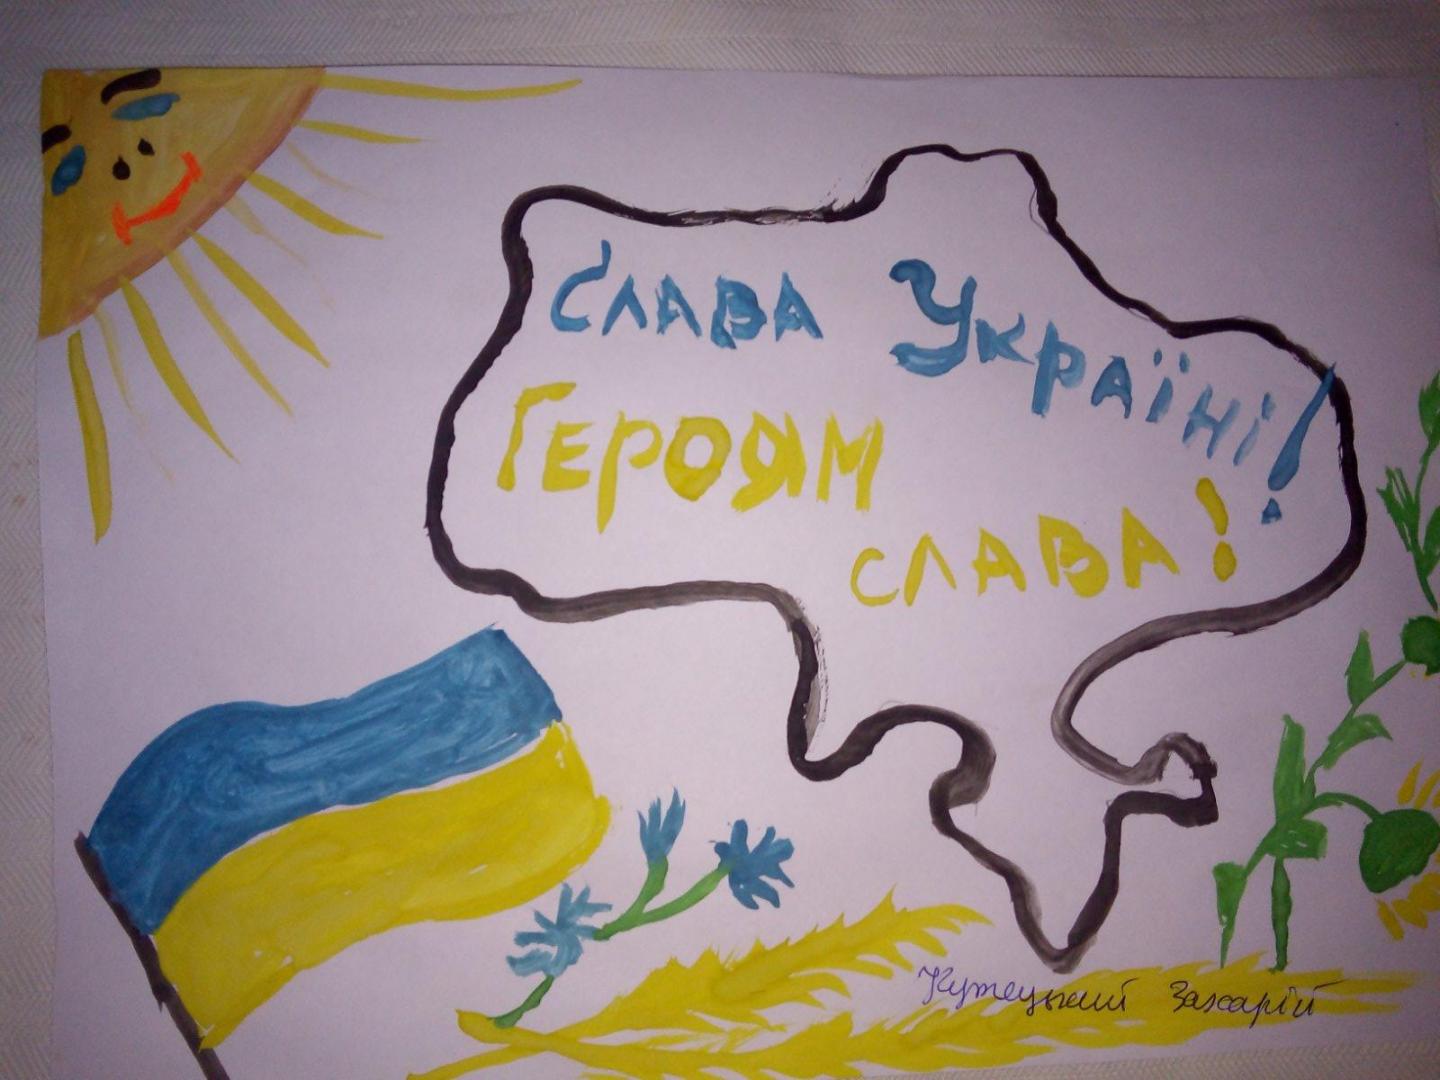 Слава Україні!
Героям
слава!
Захарій